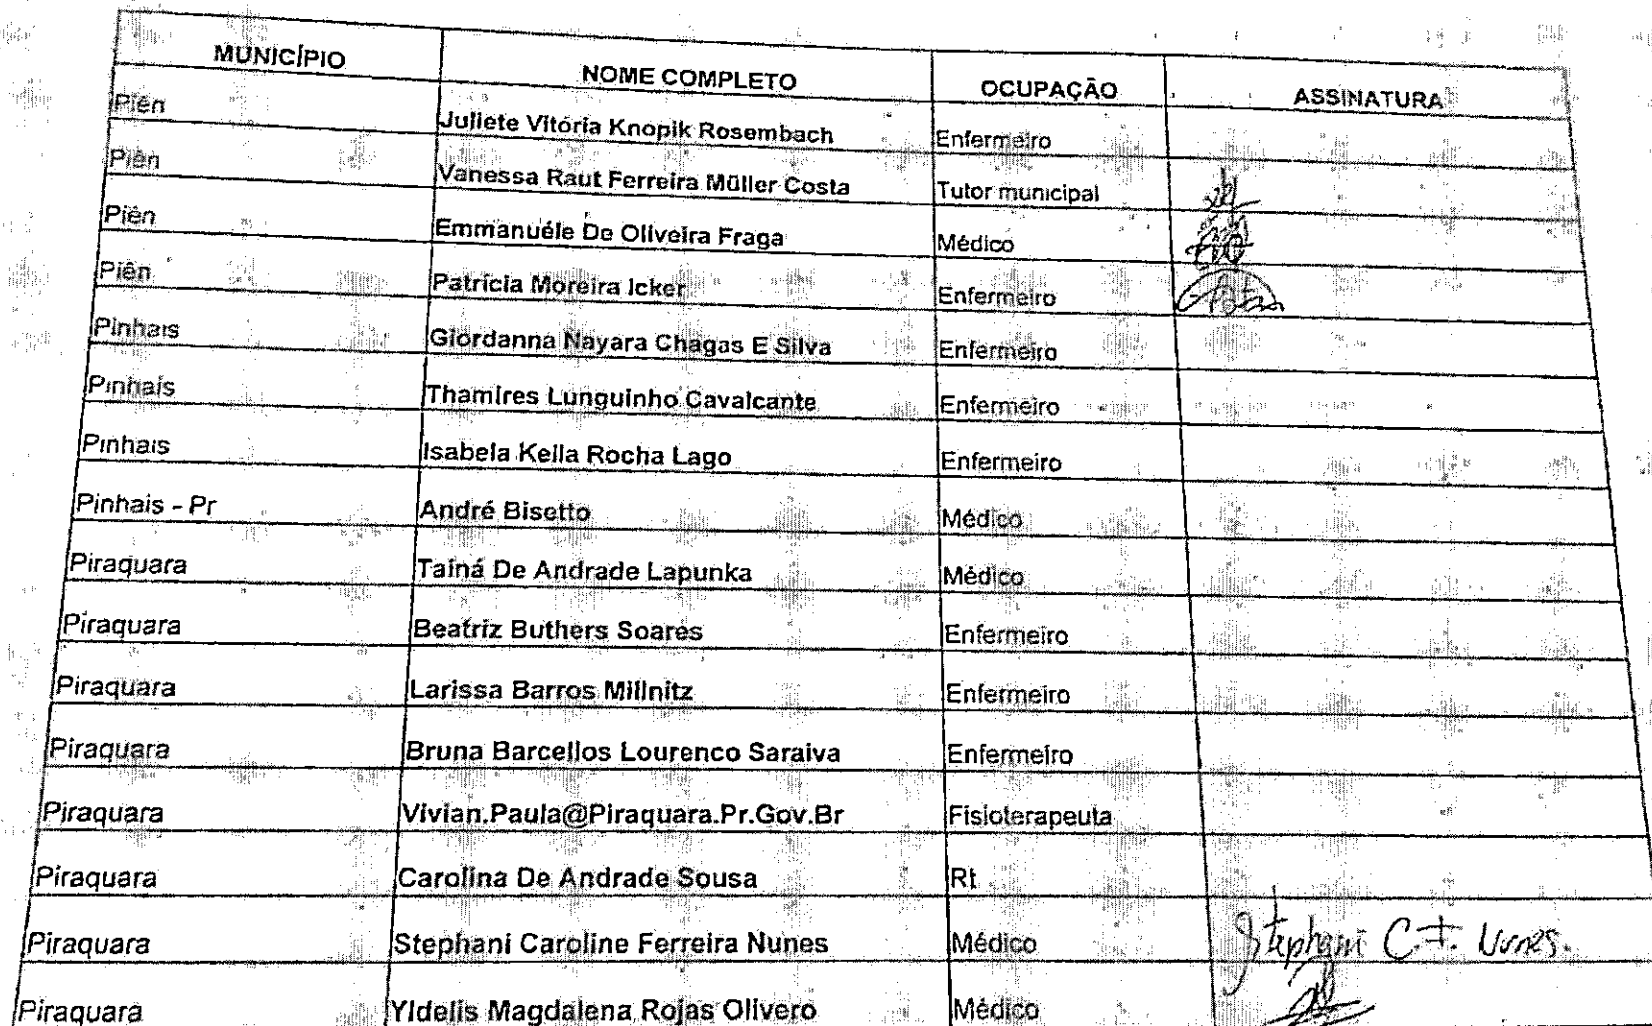 MUNICÍPIO NOME COMPLETO OCUPAÇÃO ASSINATURA
Piên Juliete Vitória Knopik Rosembach Enfermeiro
Piên Vanessa Raut Ferreira Müller Costa Tutor municipal
Piên Emmanuéle De Oliveira Fraga Médico
Piên Patricia Moreira Icker Enfermeiro
Pinhais Giordanna Nayara Chagas E Silva Enfermeiro
Pinhais Thamires Lunguinho Cavalcante Enfermeiro
Pinhais Isabela Keila Rocha Lago Enfermeiro
Pinhais - Pr André Bisetto Médico
Piraquara Tainá De Andrade Lapunka Médico
Piraquara Beatriz Buthers Soares Enfermeiro
Piraquara Larissa Barros Millnitz Enfermeiro
Piraquara Bruna Barcellos Lourenco Saraiva Enfermeiro
Piraquara Vivian.Paula@Piraquara.Pr.Gov.Br Fisioterapeuta
Piraquara Carolina De Andrade Sousa Rt
Piraquara Stephani Caroline Ferreira Nunes Médico Stephani C F. Nunes.
Piraquara Yldelis Magdalena Rojas Olivero Médico